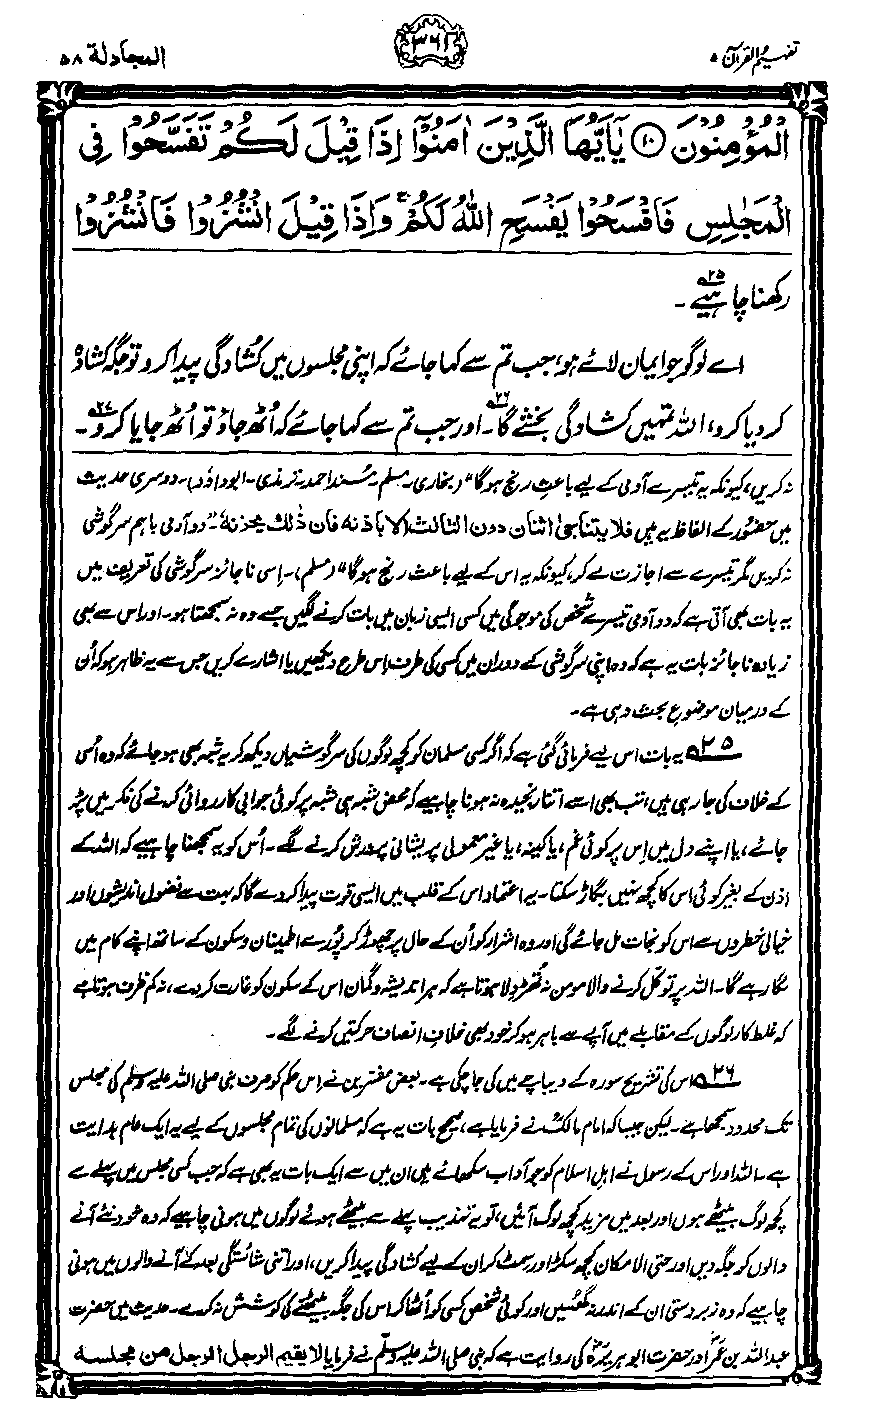 تفہیم القرآن ۵
۳۶۱
المجادلة ۵۸
الْمُؤْمِنُوْنَ ۝۱۰ يٰٓاَيُّهَا الَّذِيْنَ اٰمَنُوْٓا اِذَا قِيْلَ لَكُمْ تَفَسَّحُوْا فِى
الْمَجٰلِسِ فَافْسَحُوْا يَفْسَحِ اللّٰهُ لَكُمْ ۚ وَاِذَا قِيْلَ انْشُزُوْا فَانْشُزُوْا
رکھنا چاہیے۲۵۔
اے لوگو جو ایمان لائے ہو، جب تم سے کہا جائے کہ اپنی مجلسوں میں کُشادگی پیدا کرو تو جگہ کشادہ
کر دیا کرو، اللہ تمہیں کشادگی بخشے گا۲۶۔ اور جب تم سے کہا جائے کہ اُٹھ جاؤ تو اُٹھ جایا کرو۲۷۔
نہ کریں، کیونکہ یہ تیسرے آدمی کے لیے باعثِ رنج ہوگا“ (بخاری۔ مسلم۔ مُسند احمد۔ ترمذی۔ ابوداؤد)۔ دوسری حدیث
میں حضورؐ کے الفاظ یہ ہیں فلا یتناجیٰ اثنان دون الثالث الا باذنہ فان ذٰلک یحزنہٗ۔ ”دو آدمی باہم سرگوشی
نہ کریں مگر تیسرے سے اجازت لے کر، کیونکہ یہ اس کے لیے باعث رنج ہوگا“ (مسلم)۔ اِسی ناجائز سرگوشی کی تعریف میں
یہ بات بھی آتی ہے کہ دو آدمی تیسرے شخص کی موجودگی میں کسی ایسی زبان میں بات کرنے لگیں جسے وہ نہ سمجھتا ہو۔ اور اس سے بھی
زیادہ ناجائز بات یہ ہے کہ وہ اپنی سرگوشی کے دوران میں کسی کی طرف اِس طرح دیکھیں یا اشارے کریں جس سے یہ ظاہر ہو کہ اُن
کے درمیان موضوعِ بحث وہی ہے۔
۲۵ یہ بات اس لیے فرمائی گئی ہے کہ اگر کسی مسلمان کو کچھ لوگوں کی سرگوشیاں دیکھ کر یہ شبہ بھی ہو جائے کہ وہ اُسی
کے خلاف کی جا رہی ہیں، تب بھی اسے اتنا رنجیدہ نہ ہونا چاہیے کہ محض شبہ ہی شبہ پر کوئی جوابی کارروائی کرنے کی فکر میں پڑ
جائے، یا اپنے دل میں اِس پر کوئی غم، یا کینہ، یا غیر معمولی پریشانی پرورش کرنے لگے۔ اُس کو یہ سمجھنا چاہیے کہ اللہ کے
اذن کے بغیر کوئی اس کا کچھ نہیں بگاڑ سکتا۔ یہ اعتماد اس کے قلب میں ایسی قوت پیدا کر دے گا کہ بہت سے فضول اندیشوں اور
خیالی خطروں سے اس کو نجات مل جائے گی اور وہ اشرار کو اُن کے حال پر چھوڑ کر پُورے اطمینان و سکون کے ساتھ اپنے کام میں
لگا رہے گا۔ اللہ پر توکّل کرنے والا مومن نہ تھُڑدِلا ہوتا ہے کہ ہر اندیشہ و گمان اس کے سکون کو غارت کر دے، نہ کم ظرف ہوتا ہے
کہ غلط کار لوگوں کے مقابلے میں آپے سے باہر ہو کر خود بھی خلافِ انصاف حرکتیں کرنے لگے۔
۲۶ اس کی تشریح سورہ کے دیباچے میں کی جا چکی ہے۔ بعض مفسّرین نے اِس حکم کو صرف نبی صلی اللہ علیہ وسلم کی مجلس
تک محدود سمجھا ہے۔ لیکن جیسا کہ امام مالکؒ نے فرمایا ہے، صحیح بات یہ ہے کہ مسلمانوں کی تمام مجلسوں کے لیے یہ ایک عام ہدایت
ہے۔ اللہ اور اس کے رسول نے اہلِ اسلام کو جو آداب سکھائے ہیں ان میں سے ایک بات یہ بھی ہے کہ جب کسی مجلس میں پہلے سے
کچھ لوگ بیٹھے ہوں اور بعد میں مزید کچھ لوگ آئیں، تو یہ تہذیب پہلے سے بیٹھے ہوئے لوگوں میں ہونی چاہیے کہ وہ خود نئے آنے
والوں کو جگہ دیں اور حتی الامکان کچھ سکڑ اور سمٹ کر ان کے لیے کشادگی پیدا کریں، اور اتنی شائستگی بعد کے آنے والوں میں ہونی
چاہیے کہ وہ زبردستی ان کے اندر نہ گھسیں اور کوئی شخص کسی کو اُٹھا کر اس کی جگہ بیٹھنے کی کوشش نہ کرے۔ حدیث میں حضرت
عبداللہ بن عمرؓ اور حضرت ابوہریرہؓ کی روایت ہے کہ نبی صلی اللہ علیہ وسلم نے فرمایا لا یقیم الرجل الرجل من مجلسہ